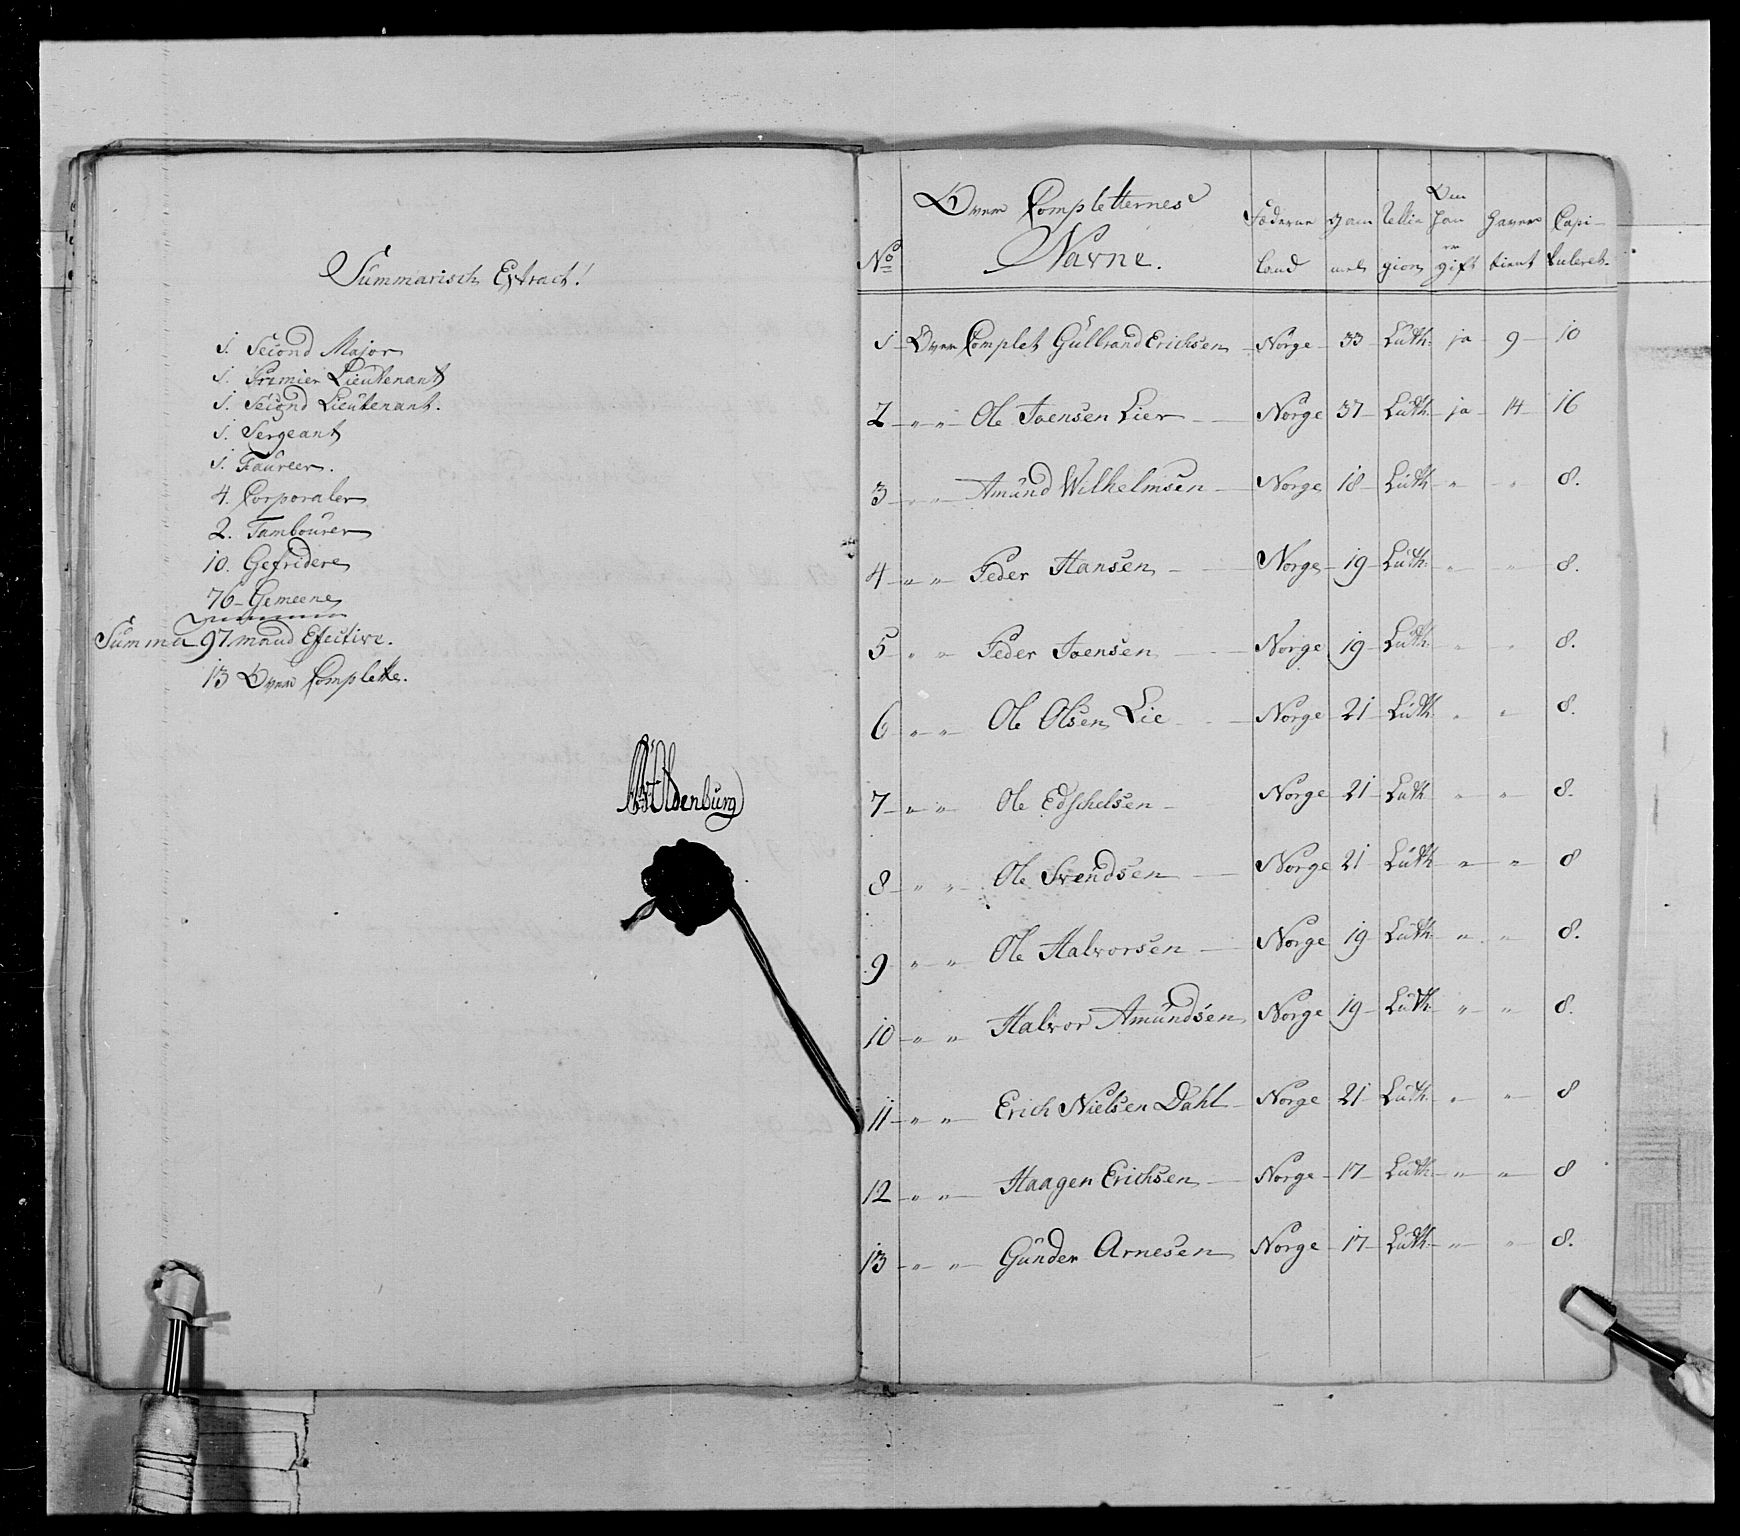 Summarisch Extract!
1. Second Major
1. Premier Lieutenant
1. Second Lieutenant.
1. Sergeant
1. Faureer.
4. Corporaler
2. Tambourer
10. Gefridere
76 Gemeene
Summa 97 mand Efective.
13 Over Complette.
Oldenburg
No Over Completternes Navne. Fæderne land Gam mel Relli gion Om han er gift Haver tient Capi- tuleret.
1 Over Complet Gulbrand Erichsen Norge 33 Luth: ja 9 10
2 " " Ole Joensen Lier Norge 37 Luth: ja 14 16
3 " " Amund Wilhelmsen Norge 18 Luth " " 8.
4 " " Peder Hansen Norge 19 Luth: " " 8.
5 " " Peder Joensen Norge 19 Luth: " " 8.
6 " " Ole Olsen Lie Norge 21 Luth: " " 8.
7 " " Ole Edschelsen Norge 21 Luth " " 8.
8 " " Ole Svendsen Norge 21 Luth " " 8
9 " " Ole Halvorsen Norge 19 Luth: " " 8.
10 " " Halvor Amundsen Norge 19 Luth: " " 8.
11 " " Erich Nielsen Dahl Norge 21 Luth: " " 8
12 " " Haagen Erichsen Norge 17 Luth: " " 8
13 " " Gunder Arnesen Norge 17 Luth: " " 8.